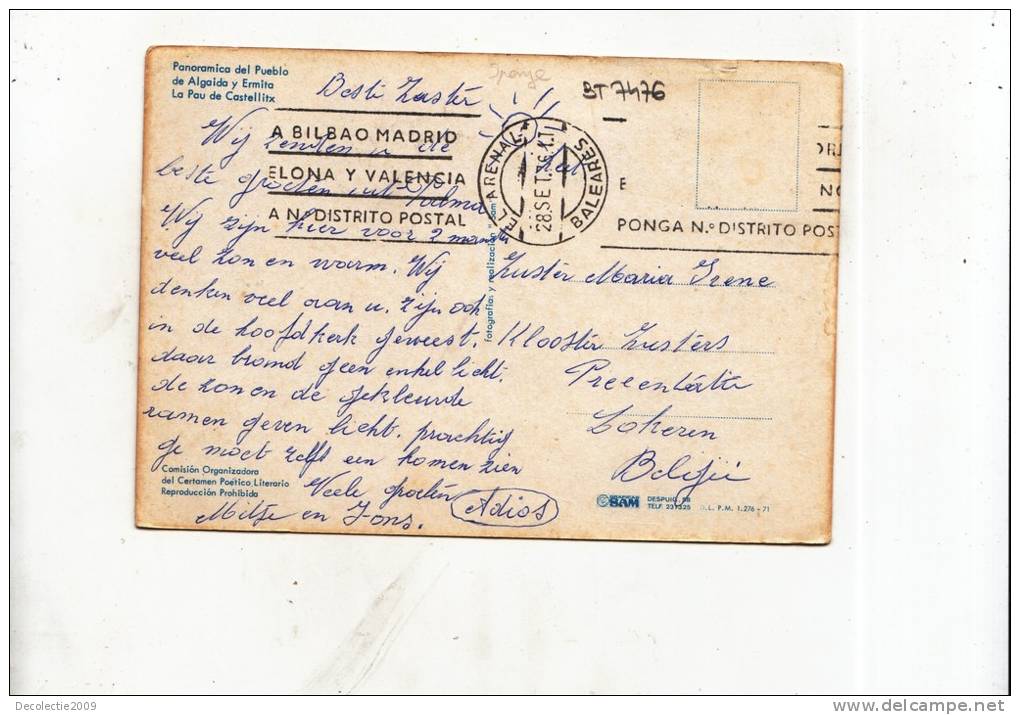 Panoramica del Pueblo
de Algaida y Ermita
La Pau de Castellitx
Spanje
BT 7476
Beste Zuster
Wij zenden u de
beste groeten uit Palma
Wij zijn hier voor 2 maand
veel zon en warm. Wij
denken veel aan u. zijn ook
in de hoofdkerk geweest.
daar brand geen enkel licht.
de zon en de gekleurde
ramen geven licht. prachtig
ge moet zelfs een komen zien
Veele groeten Adios
Mitje en
A BILBAO MADRID
ELONA Y VALENCIA
A N. DISTRITO POSTAL
EL ARENAL
28.SET.76
BALEARES
E
PONGA N.º DISTRITO POST
fotografías y realización "Bam"
Zuster Maria Irene
Klooster Zusters
Lokeren
België
Comisión Organizadora
del Certamen Poético, Literario
Reproducción Prohibida
BAM
DESPUIG, 58
TELF. 231325
D. L. P. M. 1.276 - 71
Decolectie2009
www.delcampe.net